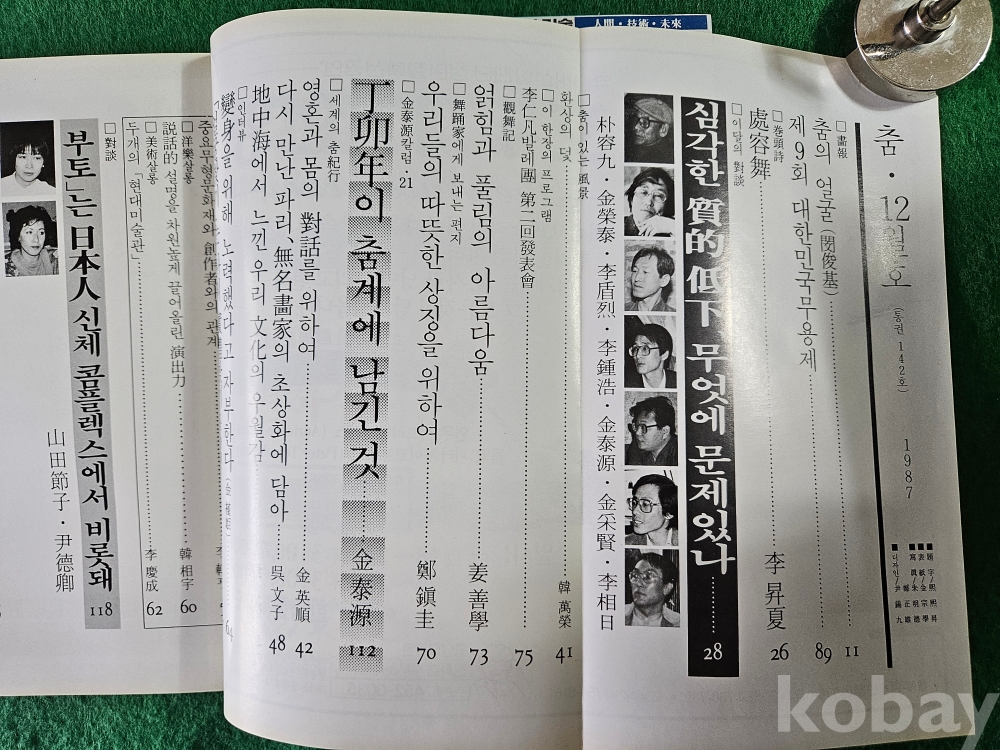 人間・技術・未來
춤・12월호
(통권 142호)
1987
■題字/熙
■表紙/金宗學
■디자인/尹錫九
□畫報
춤의 얼굴(閔俊基)
11
제9회 대한민국무용제
89
□卷頭詩
處容舞
李昇夏
26
□이달의 對談
심각한 質的低下 무엇에 문제있나
28
朴容九・金榮泰・李盾烈・李鍾浩・金泰源・金采賢・李相日
□춤이 있는 風景
환상의 덫
韓萬榮
41
□이 한장의 프로그램
李仁凡발레團 第二回發表會
75
□觀舞記
얽힘과 풀림의 아름다움
姜善學
73
□舞踊家에게 보내는 편지
우리들의 따뜻한 상징을 위하여
鄭鎭圭
70
□金泰源칼럼・21
丁卯年이 춤계에 남긴 것
金泰源
112
□세계의 춤紀行
영혼과 몸의 對話를 위하여
金英順
42
다시 만난 파리, 無名畫家의 초상화에 담아
吳文子
48
地中海에서 느낀 우리 文化의 우월감
□인터뷰
變身을 위해 노력했다고 자부한다
64
중요무형문화재와 創作者와의 관계
□洋樂살롱
說話的 설명을 차원높게 끌어올린 演出力
韓相宇
60
□美術살롱
두개의 「현대미술관」
李慶成
62
□對談
부토」는 日本人 신체 콤플렉스에서 비롯돼
118
山田節子・尹德卿
kobay